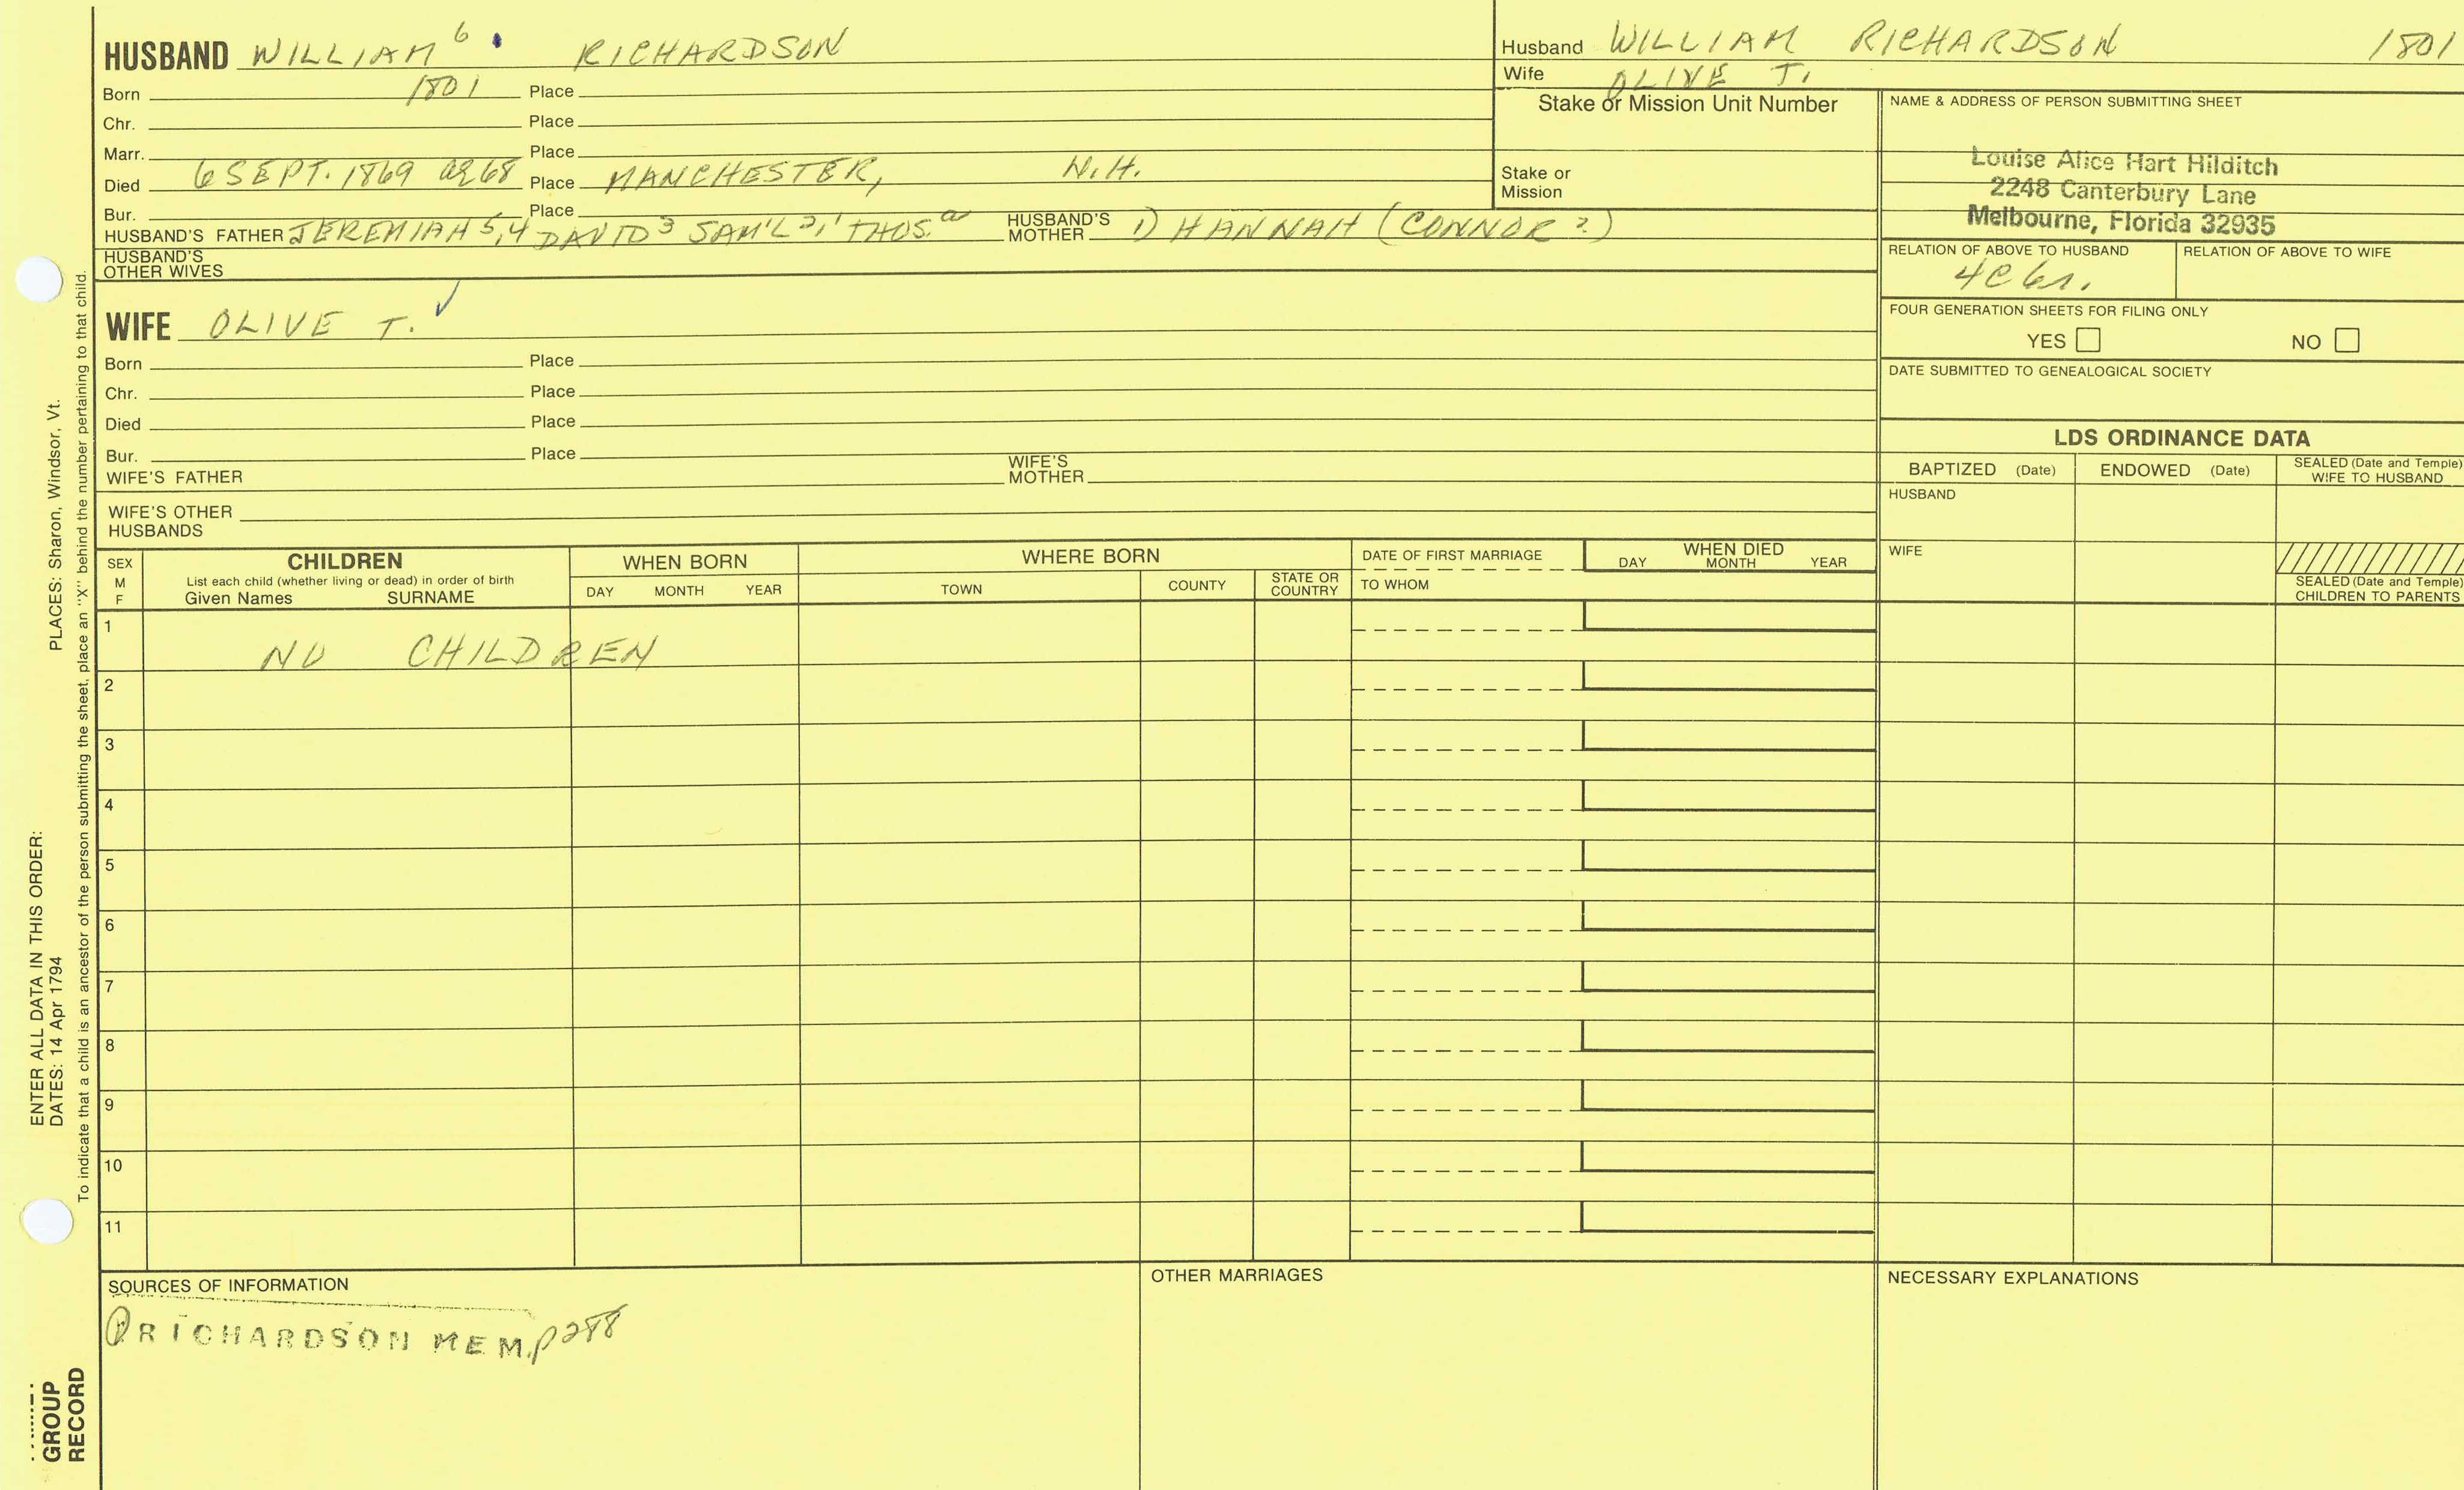 HUSBAND WILLIAM 6 RICHARDSON
Born 1801 Place
Chr. Place
Marr. Place
Died 6 SEPT. 1869 ag 68 Place MANCHESTER, N.H.
Bur. Place
HUSBAND'S FATHER JEREMIAH 5,4 DAVID 3 SAM'L 2,1 THOS. a HUSBAND'S MOTHER 1) HANNAH (CONNOR ?)
HUSBAND'S OTHER WIVES
WIFE OLIVE T. ✓
Born Place
Chr. Place
Died Place
Bur. Place
WIFE'S FATHER WIFE'S MOTHER
WIFE'S OTHER HUSBANDS
Husband WILLIAM RICHARDSON 1801
Wife OLIVE T.
Stake or Mission Unit Number
Stake or Mission
NAME & ADDRESS OF PERSON SUBMITTING SHEET
Louise Alice Hart Hilditch
2248 Canterbury Lane
Melbourne, Florida 32935
RELATION OF ABOVE TO HUSBAND RELATION OF ABOVE TO WIFE
4C 6r.
FOUR GENERATION SHEETS FOR FILING ONLY
YES NO
DATE SUBMITTED TO GENEALOGICAL SOCIETY
LDS ORDINANCE DATA
BAPTIZED (Date) ENDOWED (Date) SEALED (Date and Temple) WIFE TO HUSBAND
HUSBAND
WIFE
SEALED (Date and Temple) CHILDREN TO PARENTS
SEX M F
CHILDREN
List each child (whether living or dead) in order of birth
Given Names SURNAME
WHEN BORN
DAY MONTH YEAR
WHERE BORN
TOWN COUNTY STATE OR COUNTRY
DATE OF FIRST MARRIAGE
TO WHOM
WHEN DIED
DAY MONTH YEAR
1 NO CHILDREN
2
3
4
5
6
7
8
9
10
11
SOURCES OF INFORMATION
RICHARDSON MEM. p 288
OTHER MARRIAGES
NECESSARY EXPLANATIONS
ENTER ALL DATA IN THIS ORDER:
DATES: 14 Apr 1794 PLACES: Sharon, Windsor, Vt.
To indicate that a child is an ancestor of the person submitting the sheet, place an "X" behind the number pertaining to that child.
GROUP
RECORD